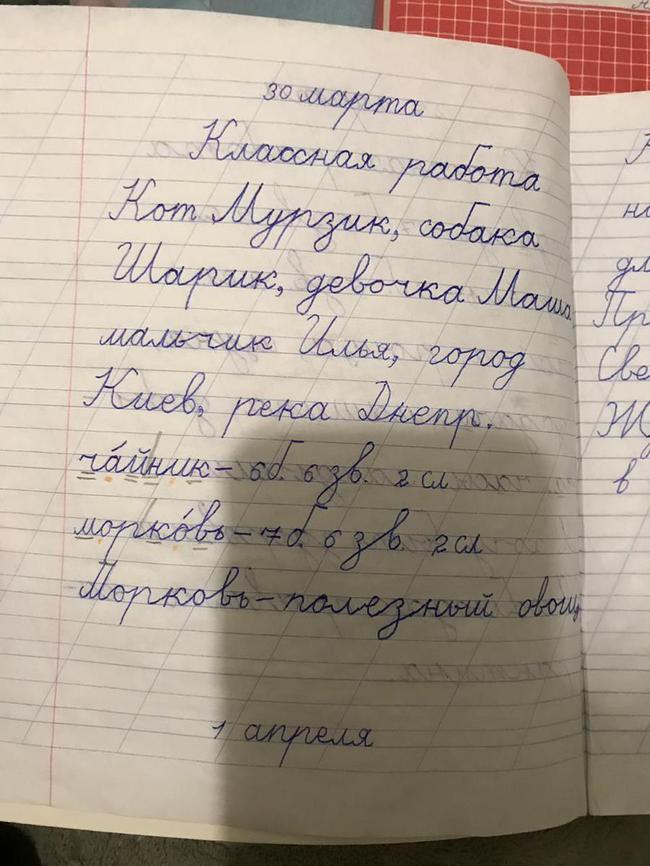 30 марта
Классная работа
Кот Мурзик, собака
Шарик, девочка Маша,
мальчик Илья, город
Киев, река Днепр.
ча́йник – 6 б. 6 зв. 2 сл
морко́вь – 7 б. 6 зв. 2 сл
Морковь – полезный овощ
1 апреля